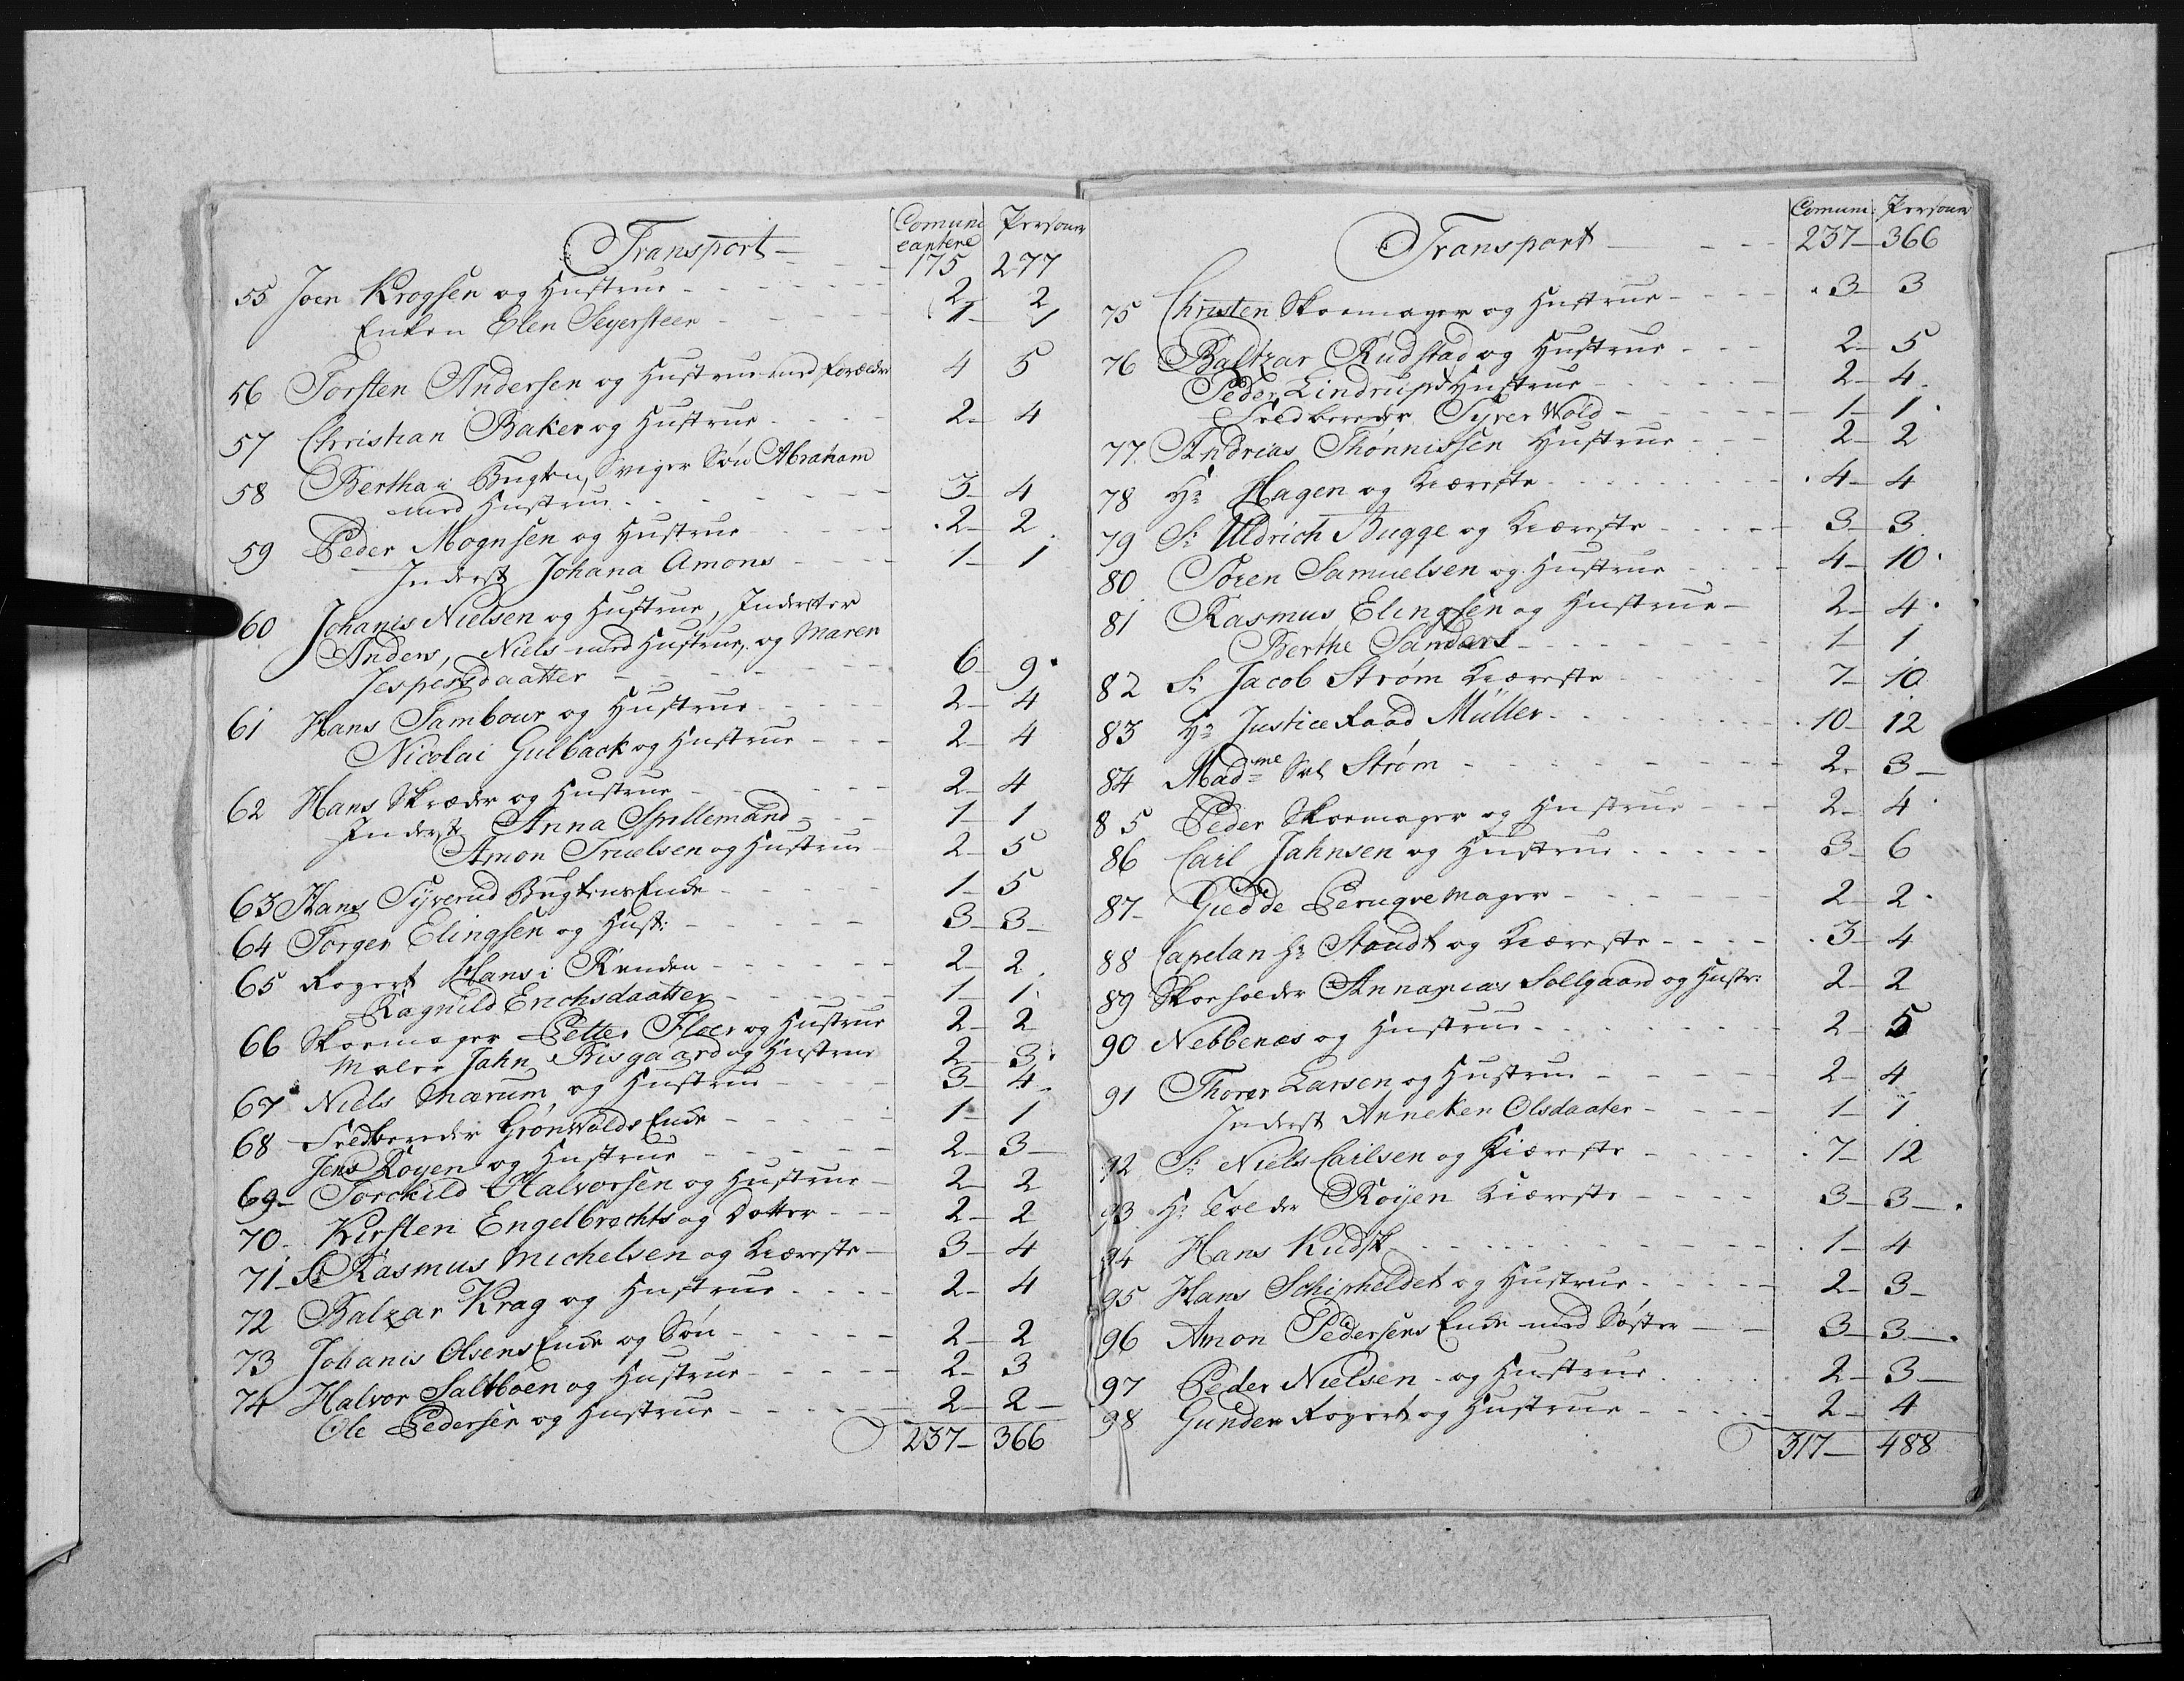 Comuni Personer
Transport - cantere
175 277
55 Joen Krogsen og Hustrue 2 2
Enken Elen Seyersteen 1 1
56 Torsten Andersen og Hustrue med forældre 4 5
57 Christian Baker og Hustrue 2 4
58 Bertha i Bugten, Sviger Søn Abraham
med Hustrue 3 4
59 Peder Mognsen og Hustrue 2 2
Inderst Johana Amons 1 1
60 Johanis Nielsen og Hustrue, Inderster
Anders, Niels med Hustrue, og Maren
Jespersdaatter 6 9
61 Hans Tambour og Hustrue 2 4
Nicolai Gulback og Hustrue 2 4
62 Hans Skræder og Hustrue 2 4
Inderst Anna Spillemand 1 1
Amon Truelsen og Hustrue 2 5
63 Hans Syverud Bugtens Enke 1 5
64 Torger Elingsen og Hust: 3 3
65 Rogert Hans i Renden 2 2
Ragnild Erichsdaatter 1 1
66 Skoemager Petter Floer og Hustrue 2 2
Maler Jahn Risgaard og Hustrue 2 3
67 Niels Mærum og Hustrue 3 4
68 Feldbereder Grønwolds Enke 1 1
Jens Royen og Hustrue 2 3
69 Torckild Halvorsen og Hustrue 2 2
70 Kirsten Engelbrechts og Dotter 2 2
71 Sr Rasmus Michelsen og Kiæreste 3 4
72 Balzar Krag og Hustrue 2 4
73 Johanis Olsens Enke og Søn 2 2
74 Halvor Saltboen og Hustrue 2 3
Ole Pedersen og Hustrue 2 2
237 366
Comuni: Personer
Transport 237 366
75 Christen Skoemager og Hustrue 3 3
76 Baltzar Rudstad og Hustrue 2 5
Peder Lindrup Hustrue 2 4
Feldbereder Syver Wold 1 1
77 Andrias Thønnissen Hustrue 2 2
78 Hr Hagen og Kiæreste 4 4
79 Sr Uldrich Bugge og Kiæreste 3 3
80 Søren Samuelsen og Hustrue 4 10
81 Rasmus Elingsen og Hustrue 2 4
Berthe Sanders 1 1
82 Sr Jacob Strøm Kiæreste 7 10
83 Hr Justice Raad Müller 10 12
84 Madme Sal Strøm 2 3
85 Peder Skoemager og Hustrue 2 4
86 Carl Jahnsen og Hustrue 3 6
87 Giedde Peruqvemager 2 2
88 Capelan Hr Staudt og Kiæreste 3 4
89 Skoeholder Annanias Sollgaard og Hustr: 2 2
90 Nebbenæs og Hustrue 2 5
91 Thorer Larsen og Hustrue 2 4
Inderst Anneken Olsdaater 1 1
92 Sr Niels Carlsen og Kiæreste 7 12
93 Hr Tolder Røyen Kiæreste 3 3
94 Hans Kudsk 1 4
95 Hans Schipheldet og Hustrue 2 3
96 Amon Pedersens Enke med Søster 3 3
97 Peder Nielsen og Hustrue 2 3
98 Gunder Rogert og Hustrue 2 4
317 488